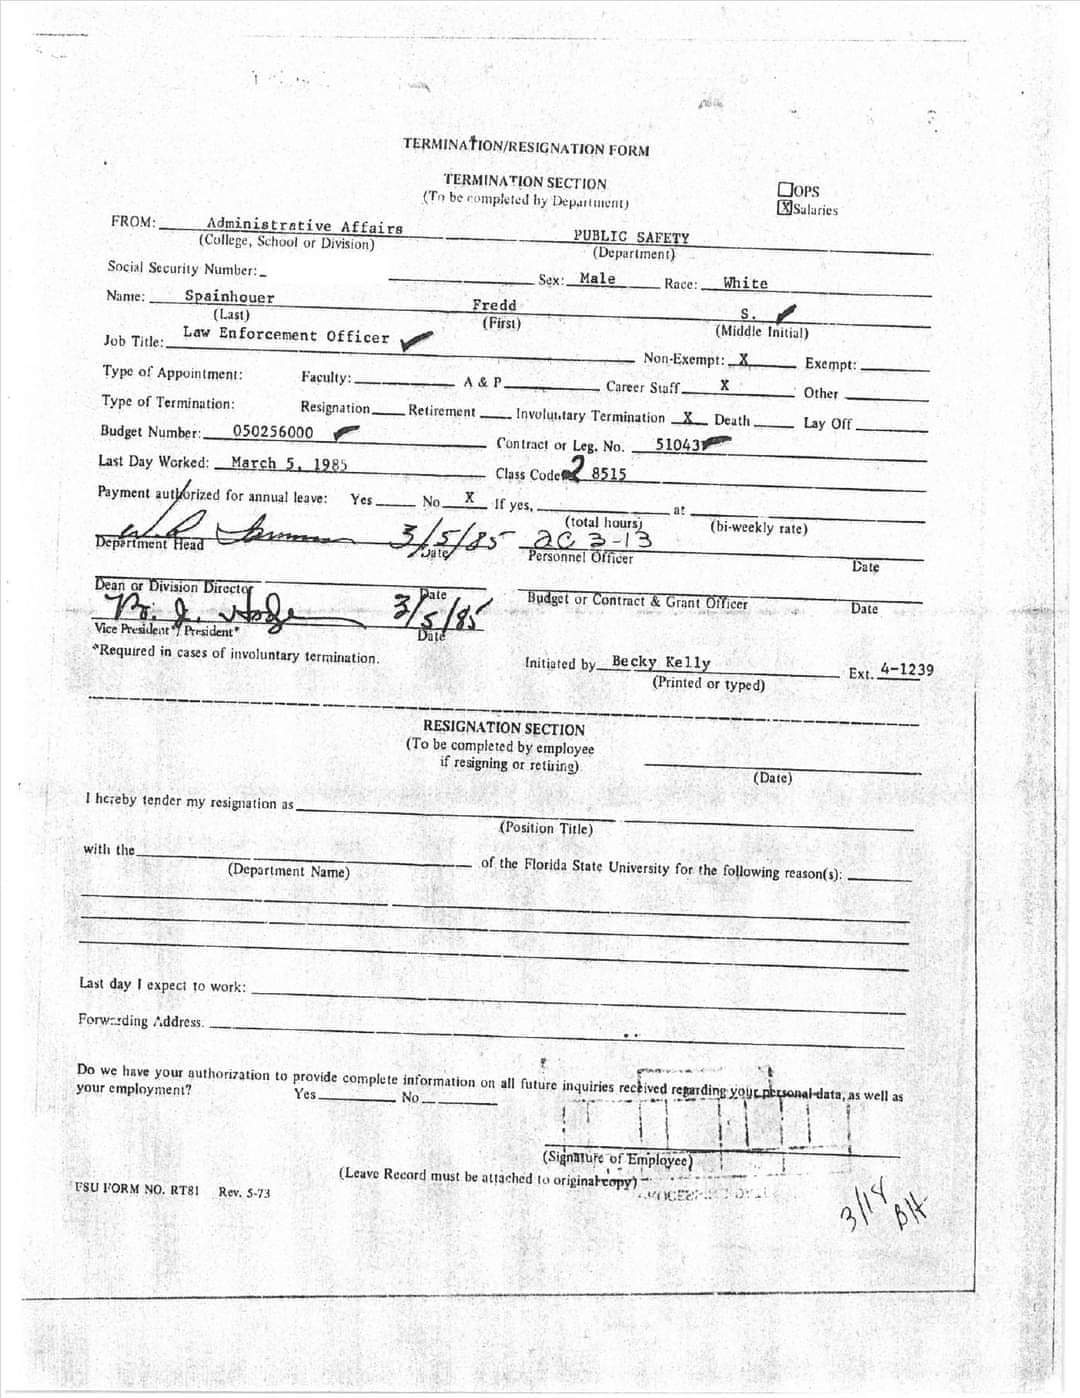 TERMINATION/RESIGNATION FORM
TERMINATION SECTION
(To be completed by Department)
☐OPS
☒Salaries
FROM: Administrative Affairs PUBLIC SAFETY
(College, School or Division) (Department)
Social Security Number: Sex: Male Race: White
Name: Spainhouer Fredd S. ✓
(Last) (First) (Middle Initial)
Job Title: Law Enforcement Officer ✓
Non-Exempt: X Exempt:
Type of Appointment: Faculty: A & P Career Staff X Other
Type of Termination: Resignation Retirement Involuntary Termination X Death Lay Off
Budget Number: 050256000 ✓ Contract or Leg. No. 51043
Last Day Worked: March 5, 1985 Class Code 2 8515
Payment authorized for annual leave: Yes No X If yes, at
(total hours) (bi-weekly rate)
3/5/85 3-13
Department Head Date Personnel Officer Date
Dean or Division Director Date Budget or Contract & Grant Officer Date
3/5/85
Vice President*/ President* Date
*Required in cases of involuntary termination. Initiated by Becky Kelly Ext. 4-1239
(Printed or typed)
RESIGNATION SECTION
(To be completed by employee
if resigning or retiring)
(Date)
I hereby tender my resignation as
(Position Title)
with the of the Florida State University for the following reason(s):
(Department Name)
Last day I expect to work:
Forwarding Address.
Do we have your authorization to provide complete information on all future inquiries received regarding your personal data, as well as
your employment? Yes No
(Signature of Employee)
(Leave Record must be attached to original copy)
FSU FORM NO. RT81 Rev. 5-73
3/18
BH